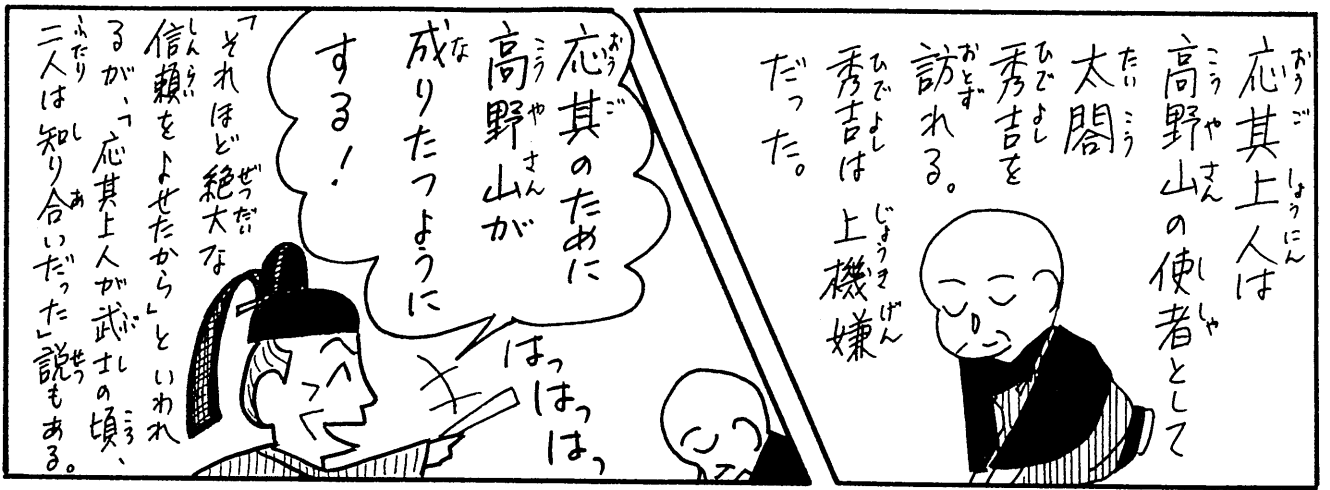 応其上人は
高野山の使者として
太閤
秀吉を
訪れる。
秀吉は上機嫌
だった。
応其のために
高野山が
成りたつように
する！
はっ
はっ
はっ
「それほど絶大な
信頼をよせたから」といわれ
るが、「応其上人が武士の頃、
二人は知り合いだった」説もある。